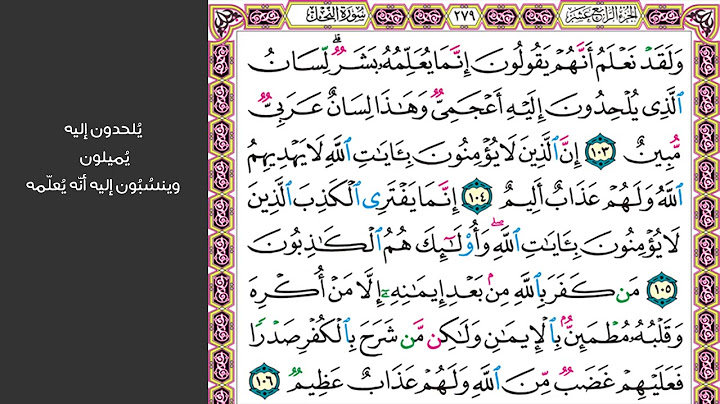 الجزء الرابع عشر ٢٧٩ سورة النحل
وَلَقَدْ نَعْلَمُ أَنَّهُمْ يَقُولُونَ إِنَّمَا يُعَلِّمُهُۥ بَشَرٌۗ لِّسَانُ
ٱلَّذِي يُلْحِدُونَ إِلَيْهِ أَعْجَمِيٌّ وَهَٰذَا لِسَانٌ عَرَبِيٌّ
مُّبِينٌ ١٠٣ إِنَّ ٱلَّذِينَ لَا يُؤْمِنُونَ بِـَٔايَٰتِ ٱللَّهِ لَا يَهْدِيهِمُ
ٱللَّهُ وَلَهُمْ عَذَابٌ أَلِيمٌ ١٠٤ إِنَّمَا يَفْتَرِي ٱلْكَذِبَ ٱلَّذِينَ
لَا يُؤْمِنُونَ بِـَٔايَٰتِ ٱللَّهِۖ وَأُوْلَٰٓئِكَ هُمُ ٱلْكَٰذِبُونَ
١٠٥ مَن كَفَرَ بِٱللَّهِ مِنۢ بَعْدِ إِيمَٰنِهِۦٓ إِلَّا مَنْ أُكْرِهَ
وَقَلْبُهُۥ مُطْمَئِنٌّۢ بِٱلْإِيمَٰنِ وَلَٰكِن مَّن شَرَحَ بِٱلْكُفْرِ صَدْرًا
فَعَلَيْهِمْ غَضَبٌ مِّنَ ٱللَّهِ وَلَهُمْ عَذَابٌ عَظِيمٌ ١٠٦
يُلحدون إليه
يُميلون
وينسُبُون إليه أنّه يُعلّمه